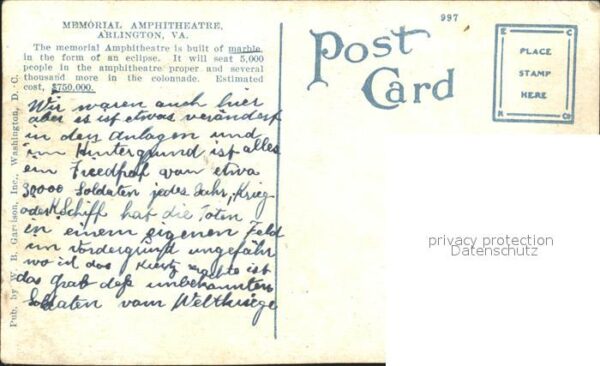 MEMORIAL AMPHITHEATRE,
ARLINGTON, VA.
The memorial Amphitheatre is built of marble,
in the form of an eclipse. It will seat 5,000
people in the amphitheatre proper and several
thousand more in the colonnade. Estimated
cost, $750,000.
Wir waren auch hier
aber es ist etwas verändert
in den Anlagen und
im Hintergrund ist alles
ein von etwa
30000 Soldaten jedes Jahr, Krieg
oder Schiff hat die Toten
in einem eigenen Feld
im vordergrund ungefähr
wo ist das ist
das grab des unbekannten
Soldaten vom Weltkriege
Pub. by W. B. Garrison, Inc., Washington, D. C.
997
Post
Card
E C
PLACE
STAMP
HERE
K Co
privacy protection
Datenschutz